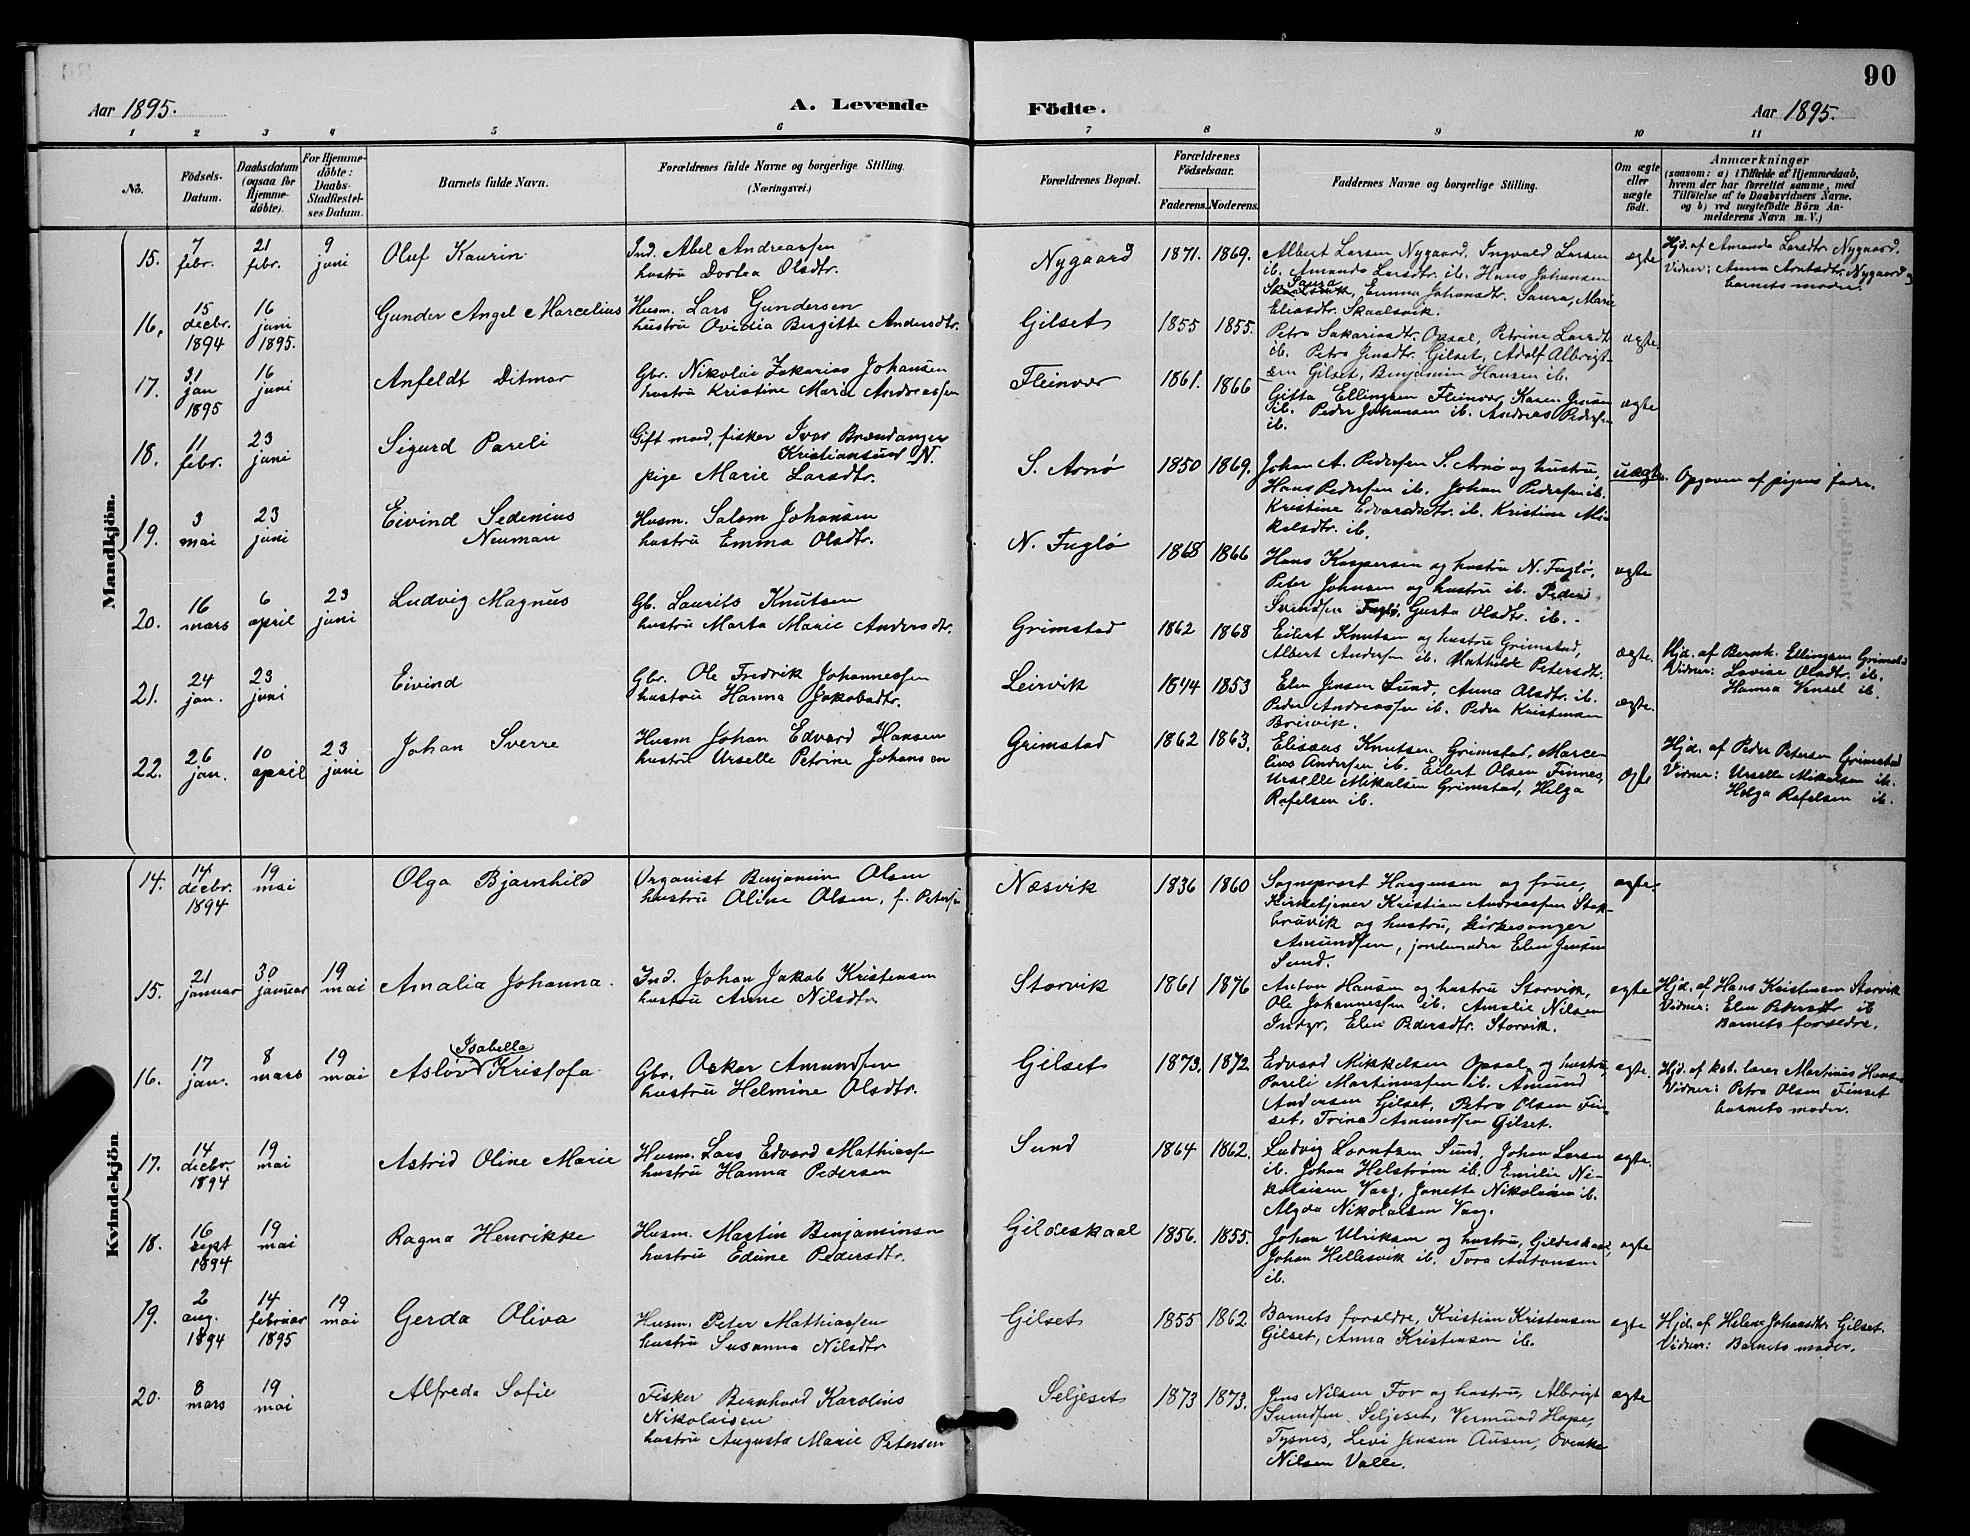 90
Aar 1895.
A. Levende
Födte.
Aar 1895.
1 2 3 4 5 6 7 8 9 10 11
No.
Födsels-Datum.
Daabsdatum (ogsaa for Hjemme-döbte).
For Hjemme-döbte: Daabs-Stadfæstel-ses Datum.
Barnets fulde Navn.
Forældrenes fulde Navne og borgerlige Stilling. (Næringsvei.)
Forældrenes Bopæl.
Forældrenes Födselsaar.
Faderens. Moderens.
Faddernes Navne og borgerlige Stilling.
Om ægte eller uægte födt.
Anmærkninger
(saasom: a) i Tilfælde af Hjemmedaab, hvem der har forrettet samme, med Tilföielse af to Daabsvidners Navne, og b) ved uægtefödte Börn An-melderens Navn m. V.)
Mandkjön.
15. 7 febr. 21 febr. 9 juni Oluf Kaurin
Ind. Abel Andreassen
hustru Dorlea Olsdtr.
Nygaard 1871. 1869.
Albert Larsen Nygaard, Ingvald Larsen
ib. Amanda Larsdtr. ib. Hans Johansen
Saura, Emma Johansdtr. Saura, Marie
Eliasdtr. Skaalsvik.
ægte
Hjd. af Amanda Larsdtr. Nygaard.
Vidner: Anna Arntsdtr. Nygaard og
barnets moder.
16. 15 decbr. 1894 16 juni 1895. Gunder Angel Marcelius
Husm. Lars Gundersen
hustru Ovidia Birgitte Andersdtr.
Gilset 1855 1855.
Petra Sakariasdtr. Opsal, Petrine Larsdtr.
ib. Petra Jensdtr. Gilset, Adolf Albrigt-
sen Gilset, Benjamin Hansen ib.
ægte.
17. 31 jan 1895 16 juni Anfeldt Ditmar
Gbr. Nikolai Zakarias Johansen
hustru Kristine Marie Andreassen
Fleinvær 1861. 1866
Gifta Ellingsen Fleinvær, Karen Jensen
ib. Peder Johansen ib. Andreas Pedersen
ib.
ægte
18. 11 febr. 23 juni Sigurd Pareli
Gift mand, fisker Ivar Brandanger
Kristiansund N.
pige Marie Larsdtr.
S. Arnø 1850 1869.
Johan A. Pedersen S. Arnø og hustru,
Hans Pedersen ib. Johan Pedersen ib.
Kristine Edvardsdtr. ib. Kristine Mi-
kelsdtr. ib.
uægte. Opgaven af pigens fader.
19. 3 mai 23 juni Eivind Sedenius
Neuman
Husm. Salam Johansen
hustru Emma Olsdtr.
N. Fuglø 1868 1866
Hans Kaspersen og hustru N. Fuglø,
Peter Johnsen og hustru ib. Peder
Svendsen Fuglø, Gusta Olsdtr. ib.
ægte
20. 16 mars 6 april 23 juni Ludvig Magnus
Gb. Laurits Knutsen
hustru Marta Marie Andersdtr.
Grimstad 1862 1868
Eilert Knutsen og hustru Grimstad,
Albert Andersen ib. Mathilde Petersdtr.
ægte.
Hjd. af Bernh. Ellingsen Grimstad
Vidner: Lovise Olsdtr. ib.
Hanna Vensel ib.
21. 24 jan. 23 juni Eivind
Gbr. Ole Fredrik Johannessen
hustru Hanna Jakobsdtr.
Leirvik 1844 1853
Elen Jensen Sund, Anna Olsdtr. ib.
Peder Andreassen ib. Peder Kristensen
Breivik.
ægte.
22. 26 jan. 10 april 23 juni Johan Sverre
Husm Johan Edvard Hansen
hustru Urselle Petrine Johansen
Grimstad 1862 1863.
Elisæus Knutsen Grimstad, Marce-
lius Andersen ib. Eilert Olsen Finnes,
Urselle Mikalsen Grimstad, Helga
Rafelsen ib.
ægte
Hjd. af Peder Petersen Grimstad
Vidner: Urselle Mikalsen ib.
Helga Rafelsen ib.
Kvindekjön
14. 14 decbr. 1894 19 mai Olga Bjarnhild
Organist Benjamin Olsen
hustru Oline Olsen, f. Petersen
Næsvik 1836 1860
Sogneprest Haagensen og frue,
Kirketjener Kristian Andreassen Stok-
kavik og hustru, kirkesanger
Amundsen, jordemoder Elen Jensen
Sund.
ægte.
15. 21 januar 30 januar 19 mai Amalia Johanna.
Ind. Johan Jakob Kristensen
hustru Anne Nilsdtr
Storvik 1861 1876
Anton Hansen og hustru Storvik,
Ole Johannessen ib. Amalie Nilsen
Indyr, Elen Pedersdtr. Storvik.
ægte
Hjd. af Hans Kristensen Storvik
Vidner: Elen Pedersdtr ib
Barnets forældre.
16. 17 jan. 8 mars 19 mai Isabella
Asløv Kristofa.
Gbr. Oskar Amundsen
hustru Helmine Olsdtr.
Gilset 1873. 1872
Edvard Mikkelsen Opsal og hustru,
Pareli Martinussen ib. Amund
Andersen Gilset, Petra Olsen Fin-
set, Trina Amundsen Gilset.
ægte.
Hjd. af kat. lærer Martinus Hansen
Vidner: Petra Olsen Finset
barnets moder.
17. 14 decbr. 1894 19 mai Astrid Oline Marie
Husm. Lars Edvard Mathiassen
hustru Hanna Pedersen
Sund 1864 1862.
Ludvig Lorntzen Sund, Johan Larsen
ib. Johan Helstrøm ib. Emilie Ni-
kolaisen Vaag, Janette Nikolaisen ib.
Alyda Nikolaisen Vaag.
ægte.
18. 16 sept 1894 19 mai Ragna Henrikke
Husm. Martin Benjaminsen
hustru Edine Pedersdtr.
Gildeskaal 1856. 1855.
Johan Ulriksen og hustru, Gildeskaal,
Johan Hellesvik ib. Tora Antonsen
ib.
ægte
19. 2 aug. 1894 14 februar 1895 19 mai Gerda Oliva
Husm. Peter Mathiassen
hustru Susanna Nilsdtr
Gilset 1855 1862
Barnets forældre, Kristian Kristensen
Gilset, Anna Kristensen ib.
ægte
Hjd. af Helene Johansdtr. Gilset.
Vidner: Barnets moder.
20. 8 mars 19 mai Alfreda Sofie
Fisker Bernhard Karolius
Nikolaisen
hustru Augusta Marie Petersen
Seljeset 1873 1873.
Jens Nilsen For og hustru, Albrigt
Simonsen Seljeset, Vermund Hope,
Tysnes, Levi Jensen Ausen, Ovenke
Nilsen Valle.
ægte